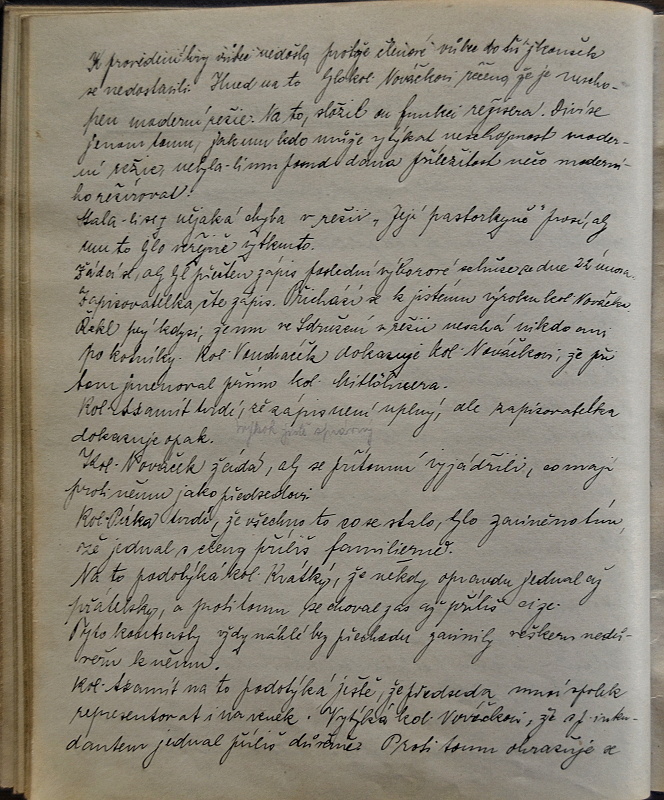 K provedení hry vůbec nedošlo, protože členové vůbec do zkoušek
se nedostavili. Ihned na to bylo kol. Nováčkovi řečeno, že je nescho-
pen moderní režie. Na to, složil on funkci režisera. Diví se
jenom tomu, jak mu kdo může vytýkat neschopnost moder-
ní režie, nebyla-li mu dána příležitost něco moderní-
ho režírovat.
Stala-li se nějaká chyba v režii „Její pastorkyně“ prosí, aby
mu to bylo veřejně vytknuto.
Žádá se, aby byl přečten zápis poslední výborové schůze ze dne 22 února.
Zapisovatelka čte zápis. Přichází se k jistému výroku kol. Nováčka
Řekl prý kdysi, že mu ve Sdružení v režii nesahá nikdo ani
po kotníky. Kol. Vondráček dokazuje kol. Nováčkovi, že při
tom jmenoval přímo kol.
Kol. tvrdí, že zápis není úplný, ale zapisovatelka
dokazuje opak. výrok jistě správný
Kol. Nováček žádá, aby se přítomní vyjádřili, co mají
proti němu jako předsedovi
Kol. Pirka tvrdí, že všechno to co se stalo, bylo zaviněno tím,
že jednal s členy příliš familierně.
Na to podotýká kol. Krátký, že někdy opravdu jednal až
přátelsky, a proti tomu se choval zas až příliš cize.
Tyto kontrasty vždy náhlé bez přechodu zavinily veškeru nedů-
věru k němu.
Kol. na to podotýká ještě, že předseda musí spolek
representovat i na venek. Vytýká kol. Nováčkovi, že s p. inku-
dantem jednal příliš důvěrně. Proti tomu ohrazuje se